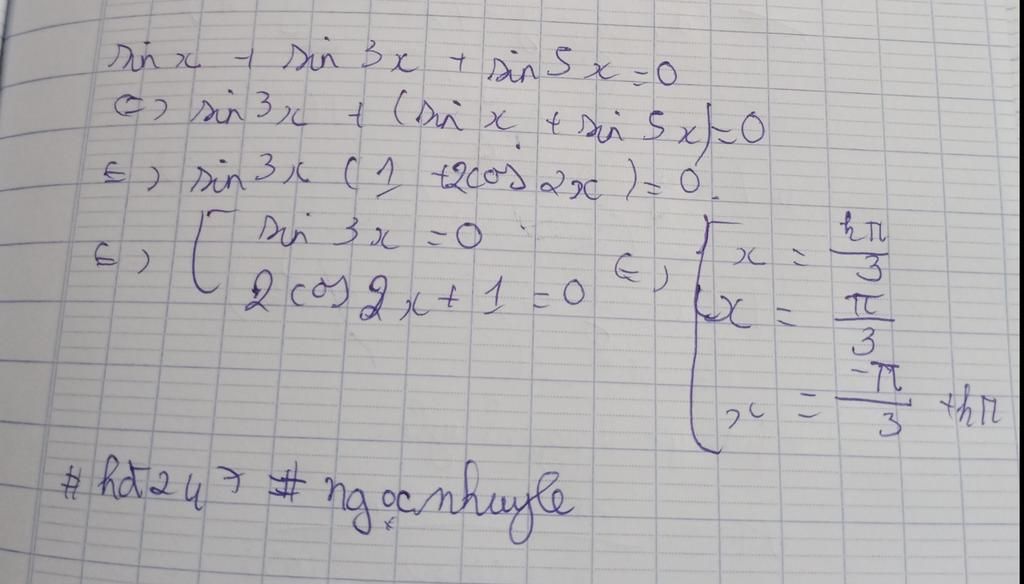 sin x + sin 3x + sin 5x = 0
⇔ sin 3x + (sin x + sin 5x) = 0
⇔ sin 3x (1 + 2cos 2x) = 0
⇔ [ sin 3x = 0
2 cos 2x + 1 = 0
⇔ [ x = kπ/3
x = π/3
x = -π/3 + kπ
# hđ247 # ngọcnhuyle